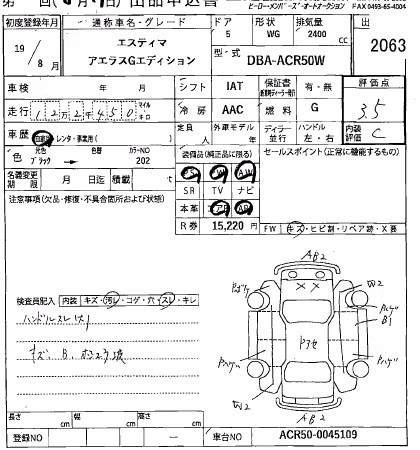 ヒーロー・メンバーズ・オートオークション FAX 0493-65-4004
初度登録年月 通称車名・グレード ドア 形状 排気量 出
19 / 8月 エスティマ 5 WG 2400 cc 2063
アエラスGエディション 型・式 DBA-ACR50W
車検 年 月 シフト IAT 保証書 有・無 評価点
走行 122,450 マイル キロ 冷房 AAC 燃料 G 3.5
車歴 自家用・レンタ・事業用( ) 定員 人 外車モデル 年 ディーラー 並行 ハンドル 左・右 内装評価 C
色 元色 ブラック → 色替 カラーNO 202 装備品(純正品に限る) セールスポイント(正常に機能するもの)
名義変更期限 月 日迄 積載 t PS PW AW
SR TV ナビ
注意事項(欠品・修復・不具合箇所および状態) 本革 エアB AB
R券 15,220 円 FW キズ・ヒビ割・リペア跡・X要
検査員記入 内装 キズ・汚レ・コゲ・穴・スレ・キレ
ハンドルスレ大
AB2
W2
B1
W2
AB2
長さ cm 幅 cm 高さ cm
登録NO 車台NO ACR50-0045109